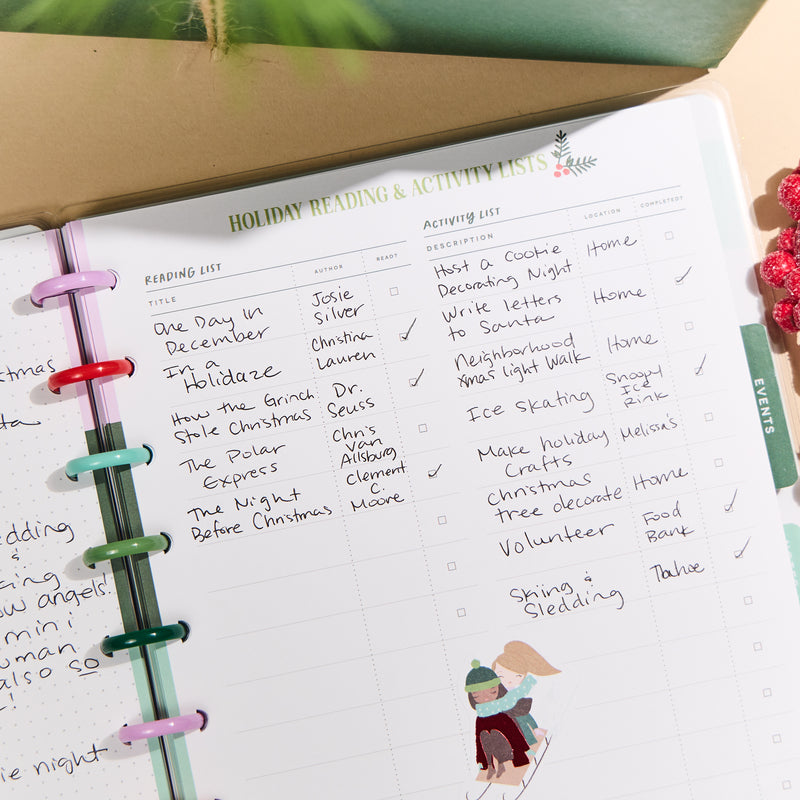 HOLIDAY READING & ACTIVITY LISTS
READING LIST
TITLE
AUTHOR
READY
One Day In
December
Josie
Silver
In a
Holidaze
Christina
Lauren
How the Grinch
Stole Christmas
Dr.
Seuss
The Polar
Express
Chris
Van
Allsburg
The Night
Before Christmas
Clement
C.
Moore
ACTIVITY LIST
DESCRIPTION
LOCATION
COMPLETED?
Host a Cookie
Decorating Night
Home
Write letters
to Santa
Home
Neighborhood
Xmas light Walk
Home
Ice skating
Snoopy
Ice
Rink
Make holiday
Crafts
Melissa's
Christmas
tree decorate
Home
Volunteer
Food
Bank
Skiing &
Sledding
Tahoe
EVENTS
mini
also so
night